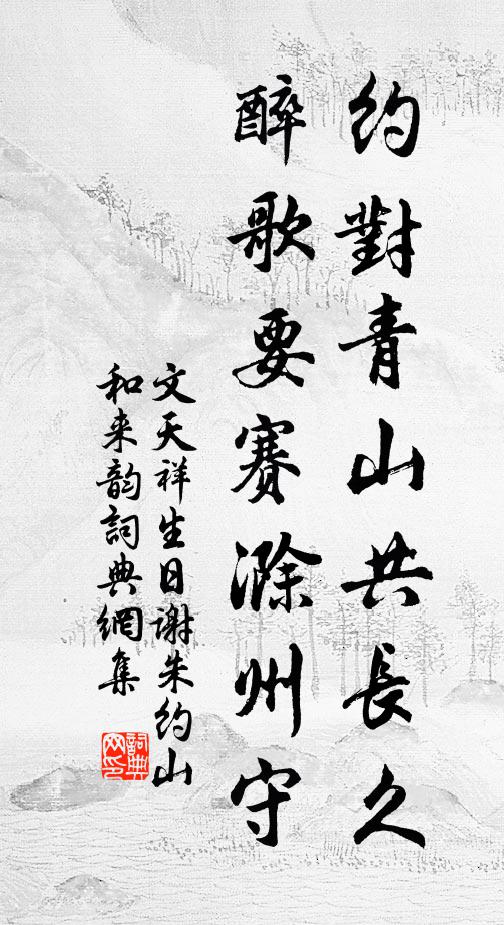 約對青山共長久
醉歌要賽滁州守
文天祥生日谢朱约山
和来韵詞典網集
詞典
网印